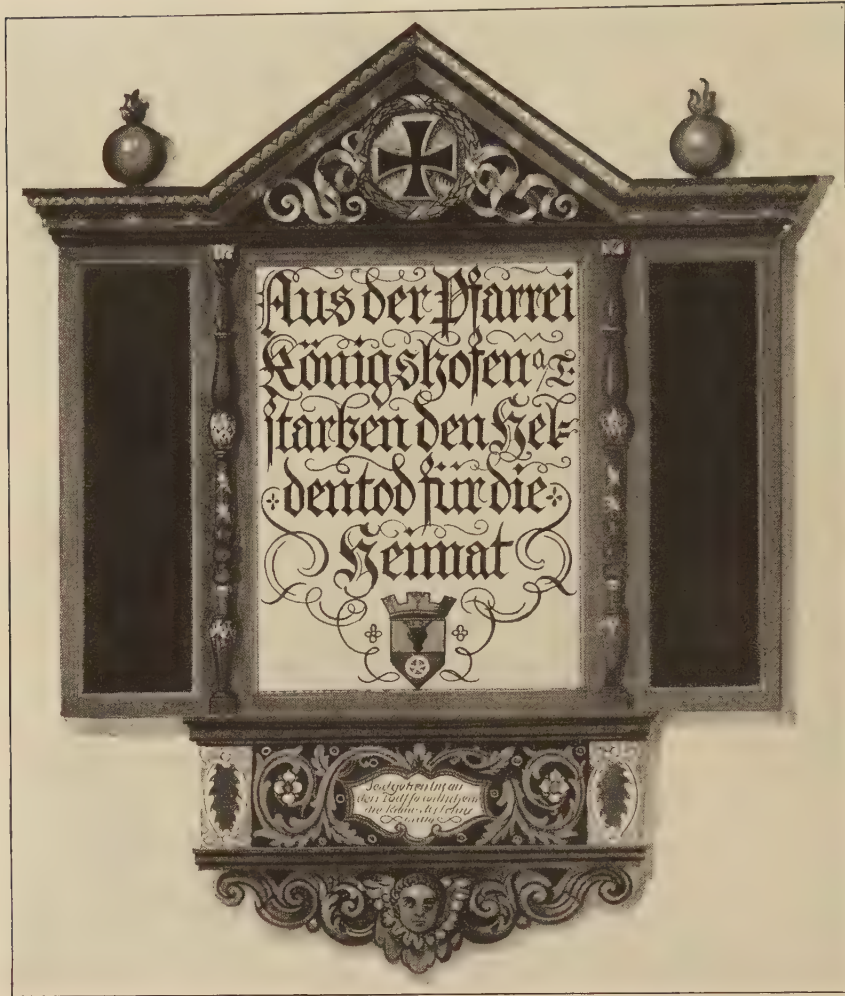 Aus der Pfarrei
Königshofen a/T.
starben den Hel=
dentod für die
Heimat
den Tod